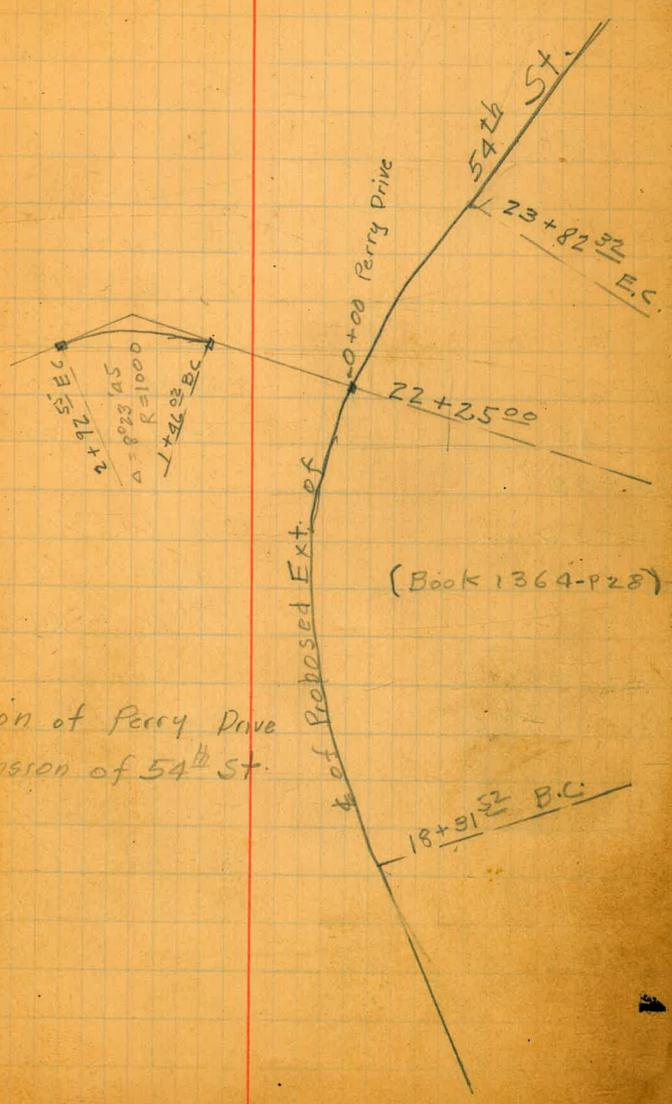 54th St.
23+82 32
E.C.
0+00 Perry Drive
22+25 00
2+92 53 E.C.
Δ = 8°23'45
R=1000
1+46 02 B.C.
℄ of Proposed Ext. of
(Book 1364-P28)
on of Perry Drive
nsion of 54th St.
18+31 52 B.C.